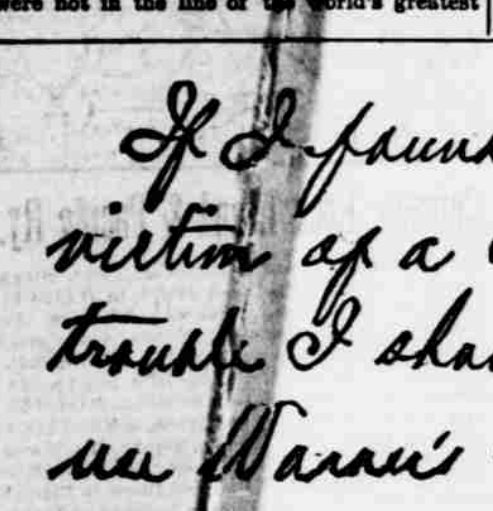 were not in the line of the world's greatest
If I foun
victim of a
trouble I sha
use Warner's